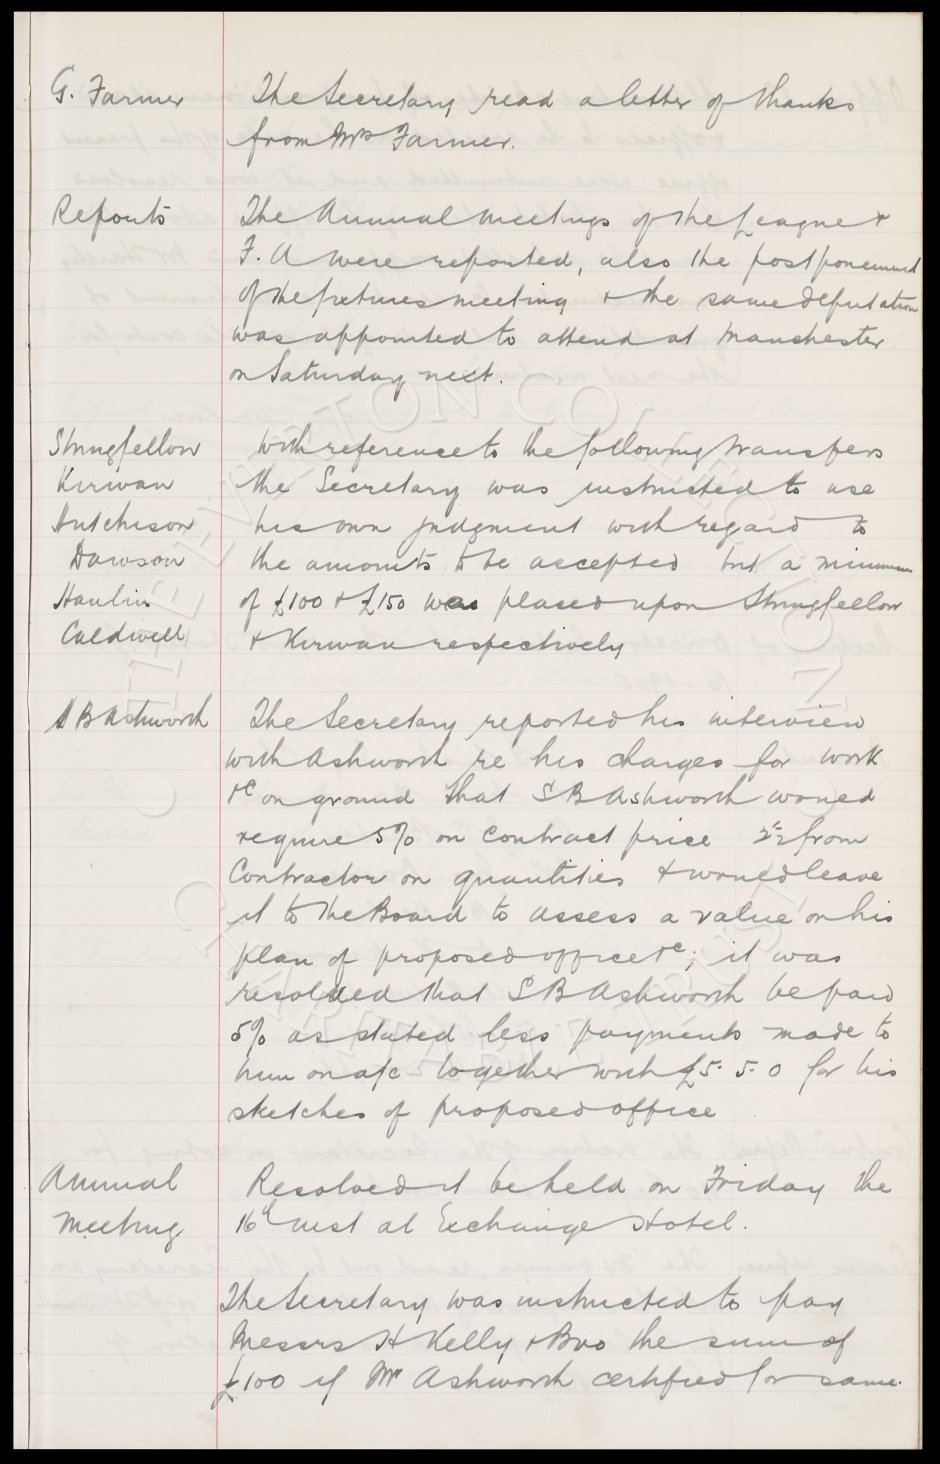 G. Farmer The Secretary read a letter of thanks
from Mrs Farmer.
Reports The Annual Meetings of the League &
F. A were reported, also the postponement
of the fixtures meeting & the same deputation
was appointed to attend at Manchester
on Saturday next.
Stringfellow With reference to the following transfers
Kirwan the Secretary was instructed to use
Hutchison his own judgment with regard to
Dawson the amounts to be accepted but a minimum
Hanlin of £100 & £150 was placed upon Stringfellow
Caldwell & Kirwan respectively
S B Ashworth The Secretary reported his interview
with Ashworth re his charges for work
&c on ground that S B Ashworth would
require 5% on contract price 2½ from
Contractor on quantities & would leave
it to the Board to assess a value on his
plan of proposed office &c; it was
resolved that S B Ashworth be paid
5% as stated less payments made to
him on a/c together with £5-5-0 for his
sketches of proposed office
Annual Resolved it be held on Friday the
Meeting 16th inst at Exchange Hotel.
The Secretary was instructed to pay
Messrs H Kelly & Bro the sum of
£100 if Mr Ashworth certified for same.
THE EVERTON COLLECTION
CHARITABLE TRUST